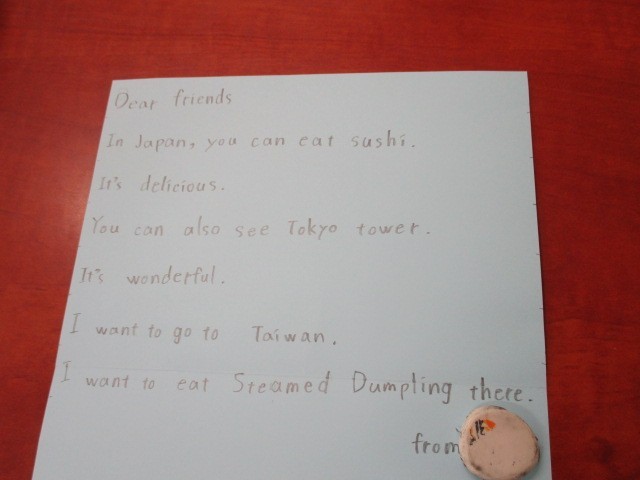 Dear friends
In Japan, you can eat sushi.
It's delicious.
You can also see Tokyo tower.
It's wonderful.
I want to go to Taiwan.
I want to eat Steamed Dumpling there.
from